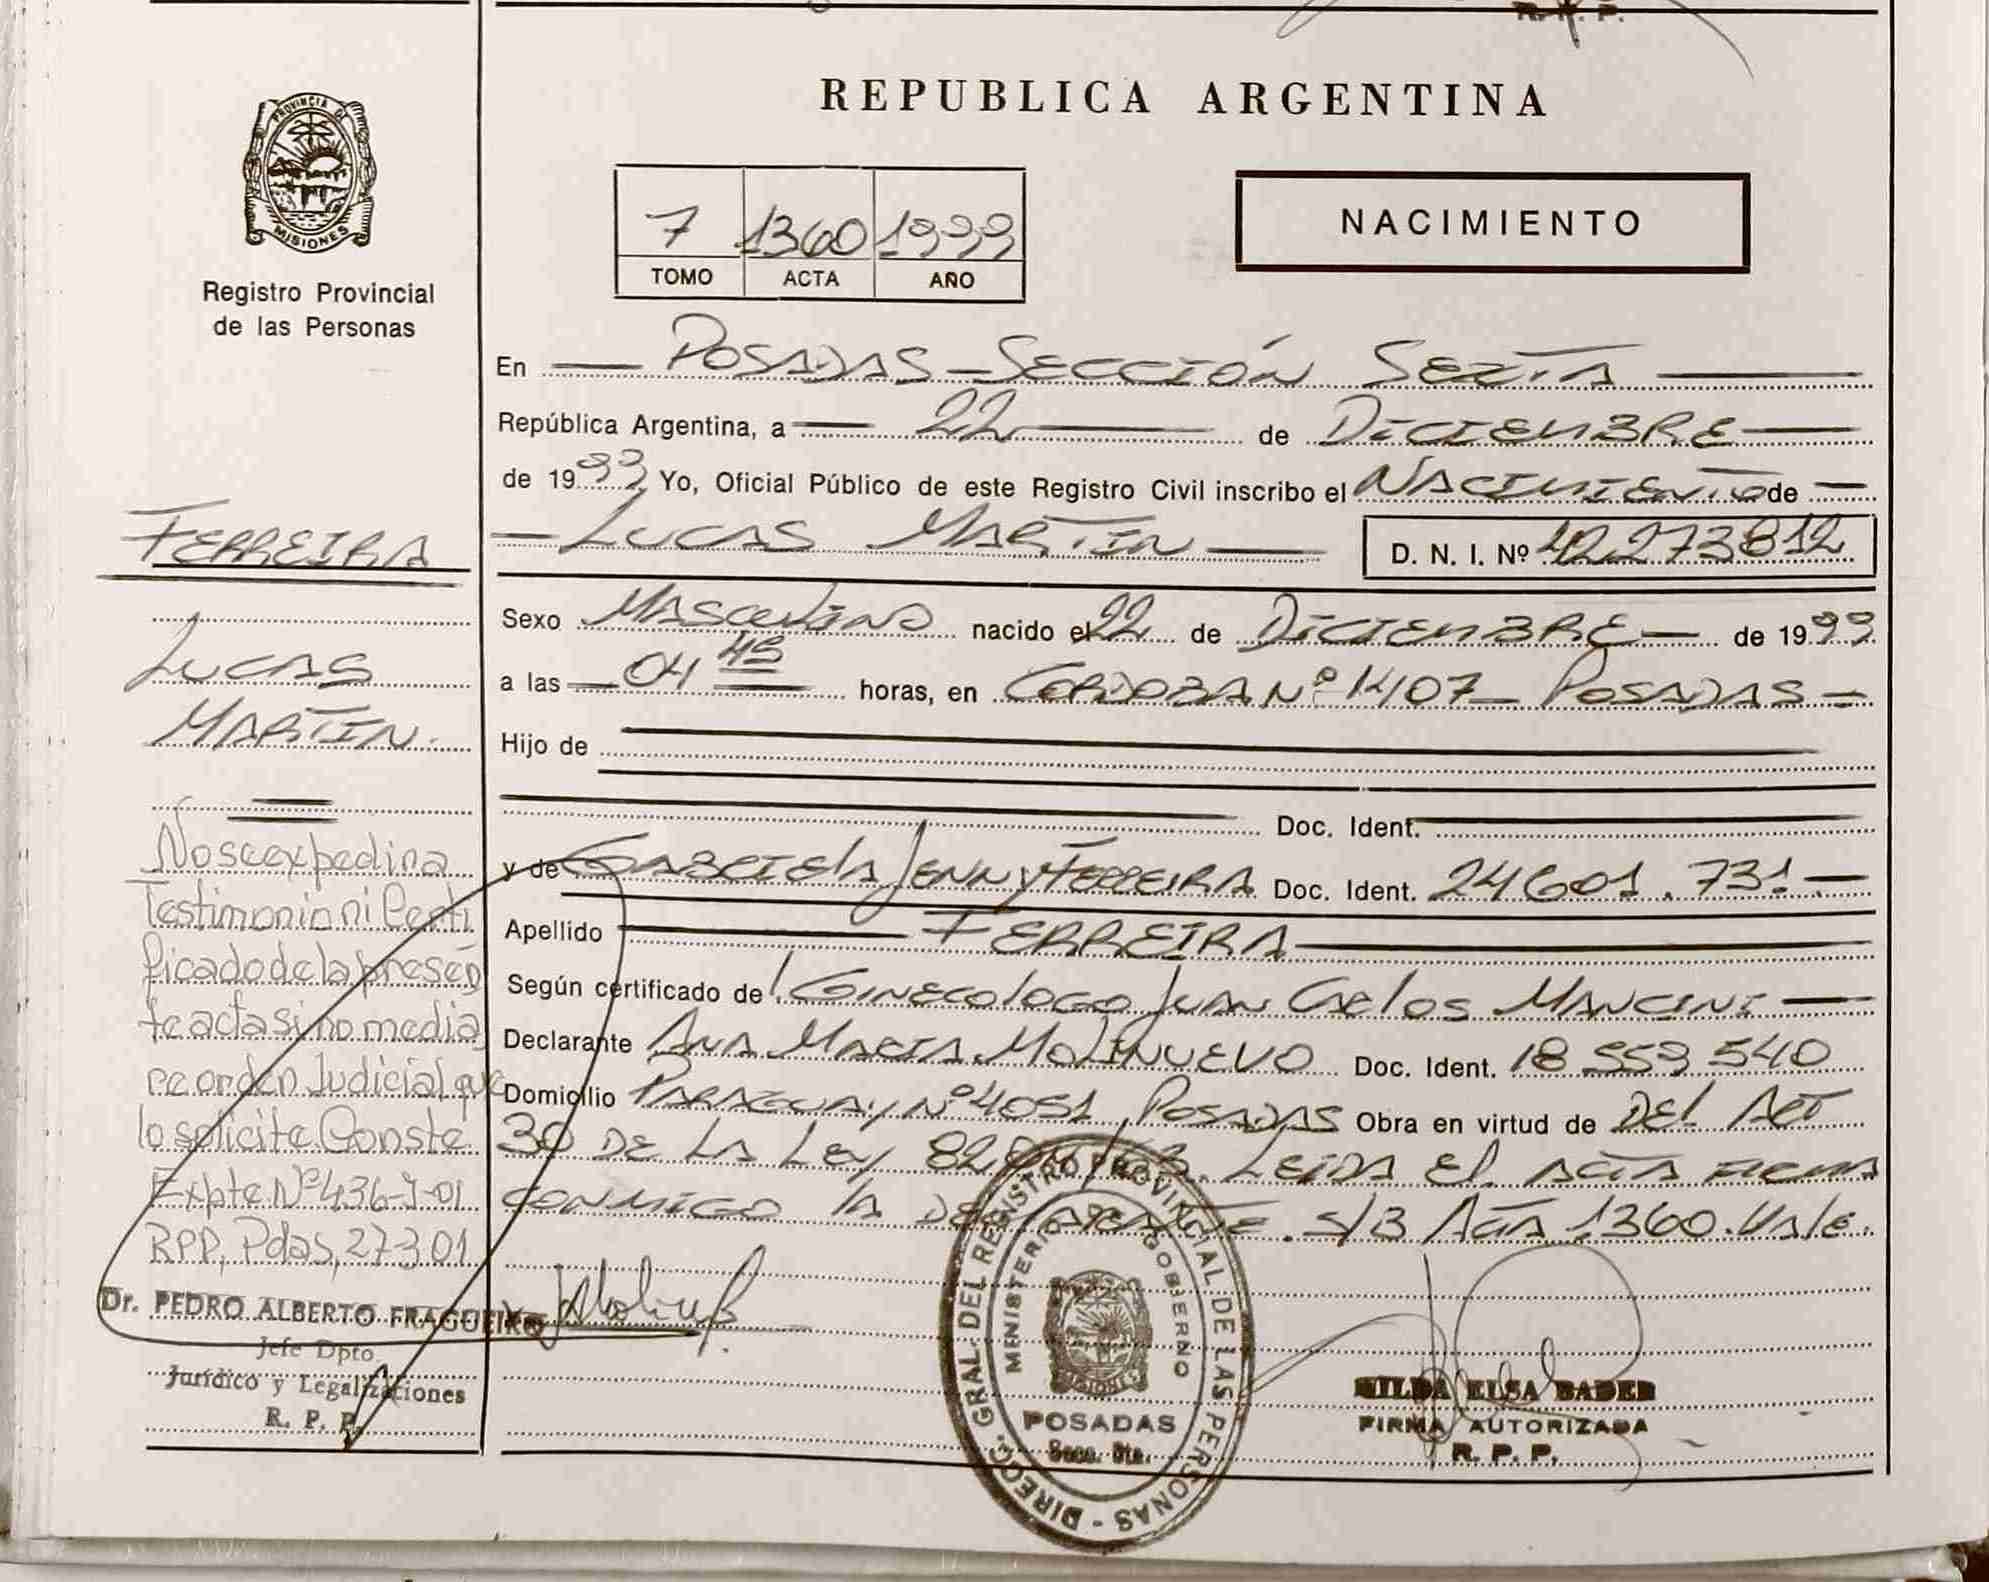 R. P. P.
REPUBLICA ARGENTINA
PROVINCIA DE
MISIONES
Registro Provincial
de las Personas
7 1360 1999
TOMO ACTA AÑO
NACIMIENTO
En POSADAS - SECCIÓN SEXTA
República Argentina, a 22 de DICIEMBRE
de 1999 Yo, Oficial Público de este Registro Civil inscribo el NACIMIENTO de
LUCAS MARTIN D. N. I. Nº 42.273812
Sexo MASCULINO nacido el 22 de DICIEMBRE de 1999
a las 04 45 horas, en CORDOBA Nº 1407 - POSADAS -
Hijo de
Doc. Ident.
y de GABRIELA JENNY FERREIRA Doc. Ident. 24601.731.-
Apellido FERREIRA
Según certificado de l. GINECOLOGO JUAN CARLOS MANCINI
Declarante ANA MARIA MOLINUEVO Doc. Ident. 18 559 540
Domicilio PARAGUAY Nº 4051, POSADAS Obra en virtud de DEL ART
30 DE LA LEY LEIDA EL ACTA FIRMA
CONMIGO LA DECLARANTE. S/B ACTA 1360. Vale.
FERREIRA
LUCAS
MARTIN.
No se expedirá
Testimonio ni Certi
ficado de la presen
te acta si no media
re orden Judicial que
lo solicite. Conste
Expte. Nº 436-J-01
RPP, Pdas, 27301
Dr. PEDRO ALBERTO FRAGUEIRO
Jefe Dpto.
Jurídico y Legalizaciones
R. P. P.
DIRECC. GRAL. DEL REGISTRO PROVINCIAL DE LAS PERSONAS -
MINISTERIO GOBIERNO
MISIONES
POSADAS
Secc. 6ta.
HILDA ELSA BADER
FIRMA AUTORIZADA
R. P. P.